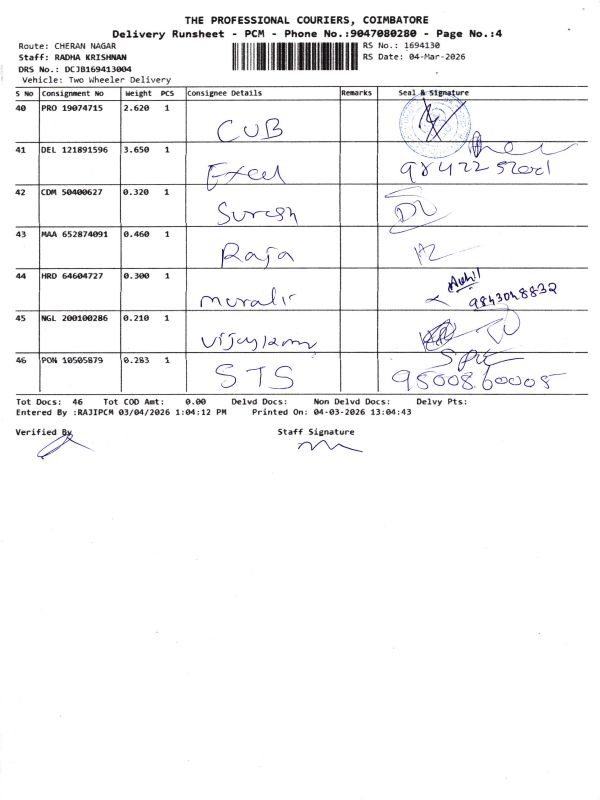 THE PROFESSIONAL COURIERS, COIMBATORE
Delivery Runsheet - PCM - Phone No.:9047080280 - Page No.:4
Route: CHERAN NAGAR
RS No.: 1694130
Staff: RADHA KRISHNAN
RS Date: 04-Mar-2026
DRS No.: DCJB169413004
Vehicle: Two Wheeler Delivery
S No Consignment No Weight PCS Consignee Details Remarks Seal & Signature
40 PRO 19074715 2.620 1 CUB
41 DEL 121891596 3.650 1 Excel
42 CDM 50400627 0.320 1 Suresh
43 MAA 652874091 0.460 1 Raja
44 HRD 64604727 0.300 1 murali 9843048832
45 NGL 200100286 0.210 1
46 PON 10505879 0.283 1 STS 9500860005
Tot Docs: 46 Tot COD Amt: 0.00 Delvd Docs: Non Delvd Docs: Delvy Pts:
Entered By :RAJIPCM 03/04/2026 1:04:12 PM Printed On: 04-03-2026 13:04:43
Verified By
Staff Signature